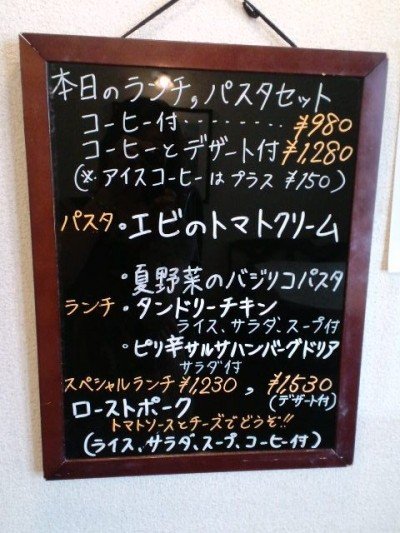 本日のランチ,パスタセット
コーヒー付‥‥‥‥ ¥980
コーヒーとデザート付 ¥1,280
(※.アイスコーヒーはプラス ¥150)
パスタ・エビのトマトクリーム
・夏野菜のバジリコパスタ
ランチ・タンドリーチキン
ライス、サラダ、スープ付
・ピリ辛サルサハンバーグドリア
サラダ付
スペシャルランチ ¥1,230 , ¥1,530
ローストポーク (デザート付)
トマトソースとチーズでどうぞ!!
(ライス、サラダ、スープ、コーヒー付)